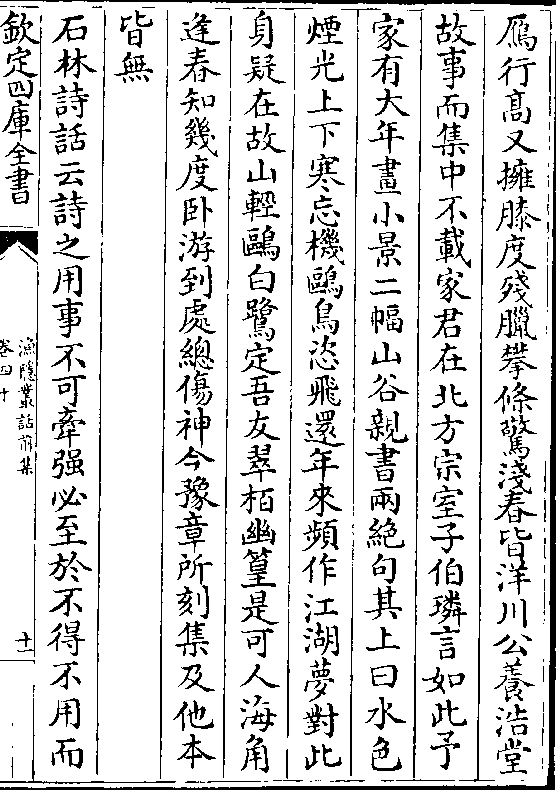 鴈行髙又擁膝度殘臘攀條驚淺春皆洋川公養浩堂
故事而集中不載家君在北方宗室子伯璘言如此予
家有大年畫小景二幅山谷親書兩絶句其上曰水色
煙光上下寒忘機鷗鳥恣飛還年來頻作江湖夢對此
身疑在故山輕鷗白鷺定吾友翠栢幽篁是可人海角
逢春知幾度卧游到處總傷神今豫章所刻集及他本
皆無
石林詩話云詩之用事不可牽强必至於不得不用而
欽定四庫全書
漁隠叢話前集
卷四十
十一